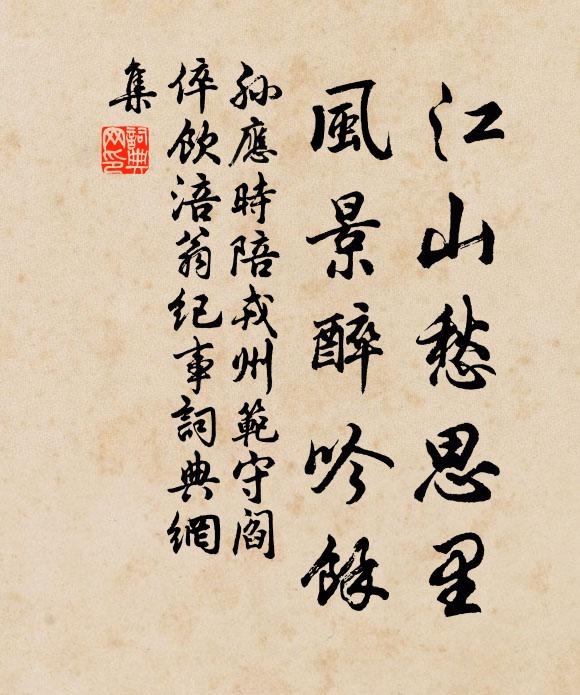 江山愁思里
風景醉吟餘
孙應時陪戎州範守閻
倅飲涪翁紀事詞典網
集
詞典
网印